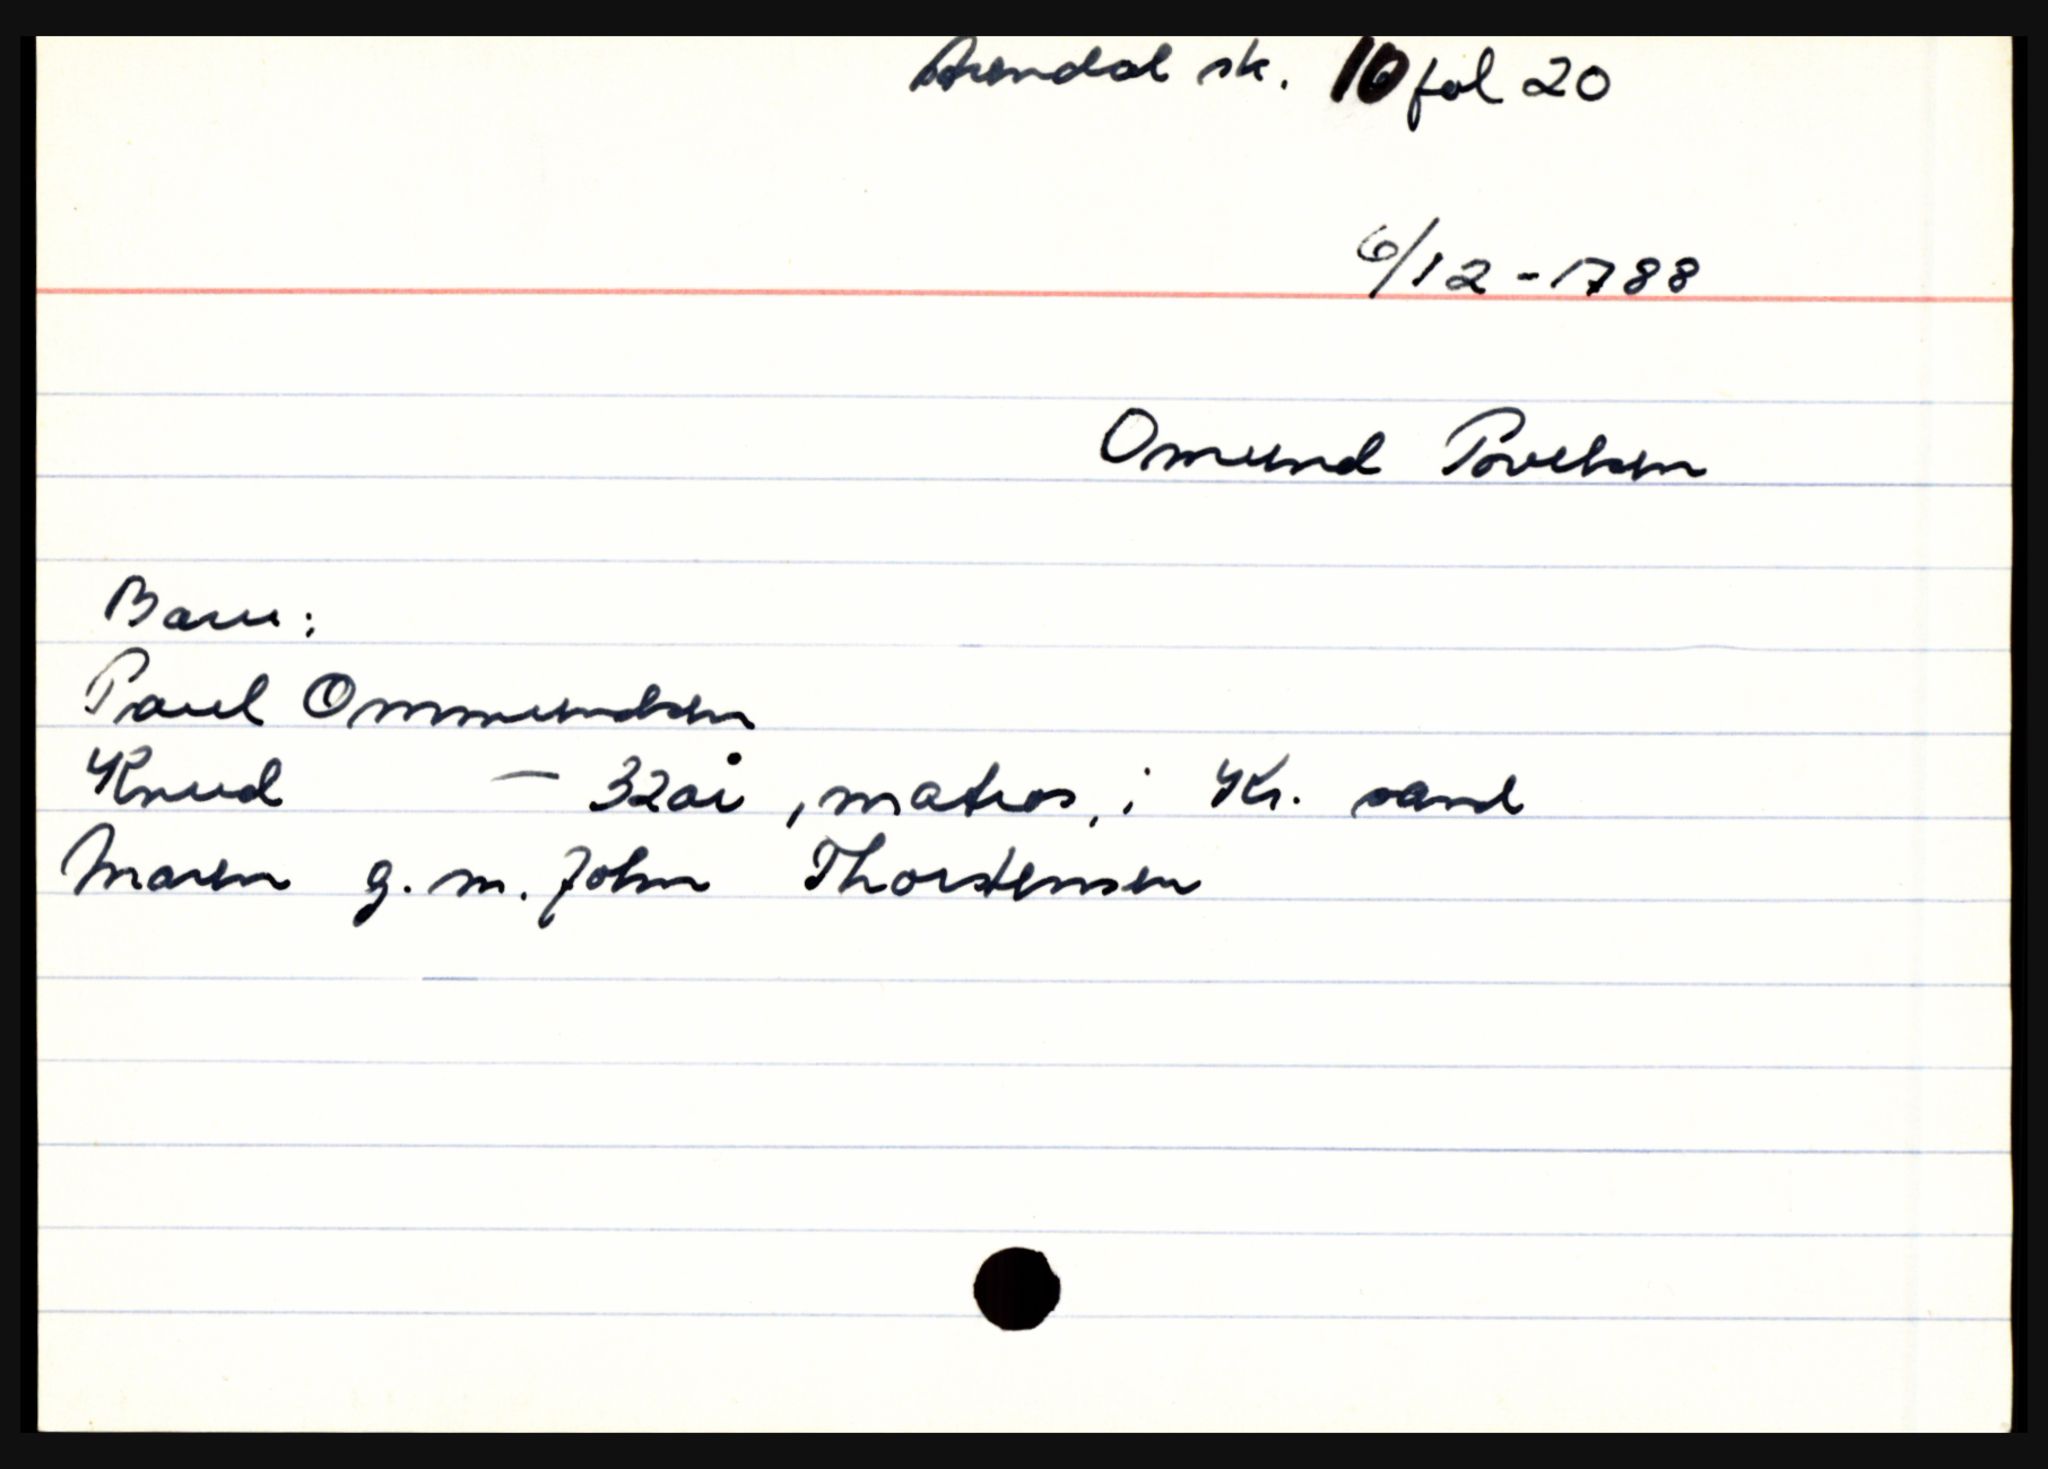 Arendal sk. 10 fol 20
6/12 - 1788
Omund Povelsen
Barn:
Paul Ommundsen
Knud — 32 år, matros, i Kr. sand
Maren g. m. John Thorstensen